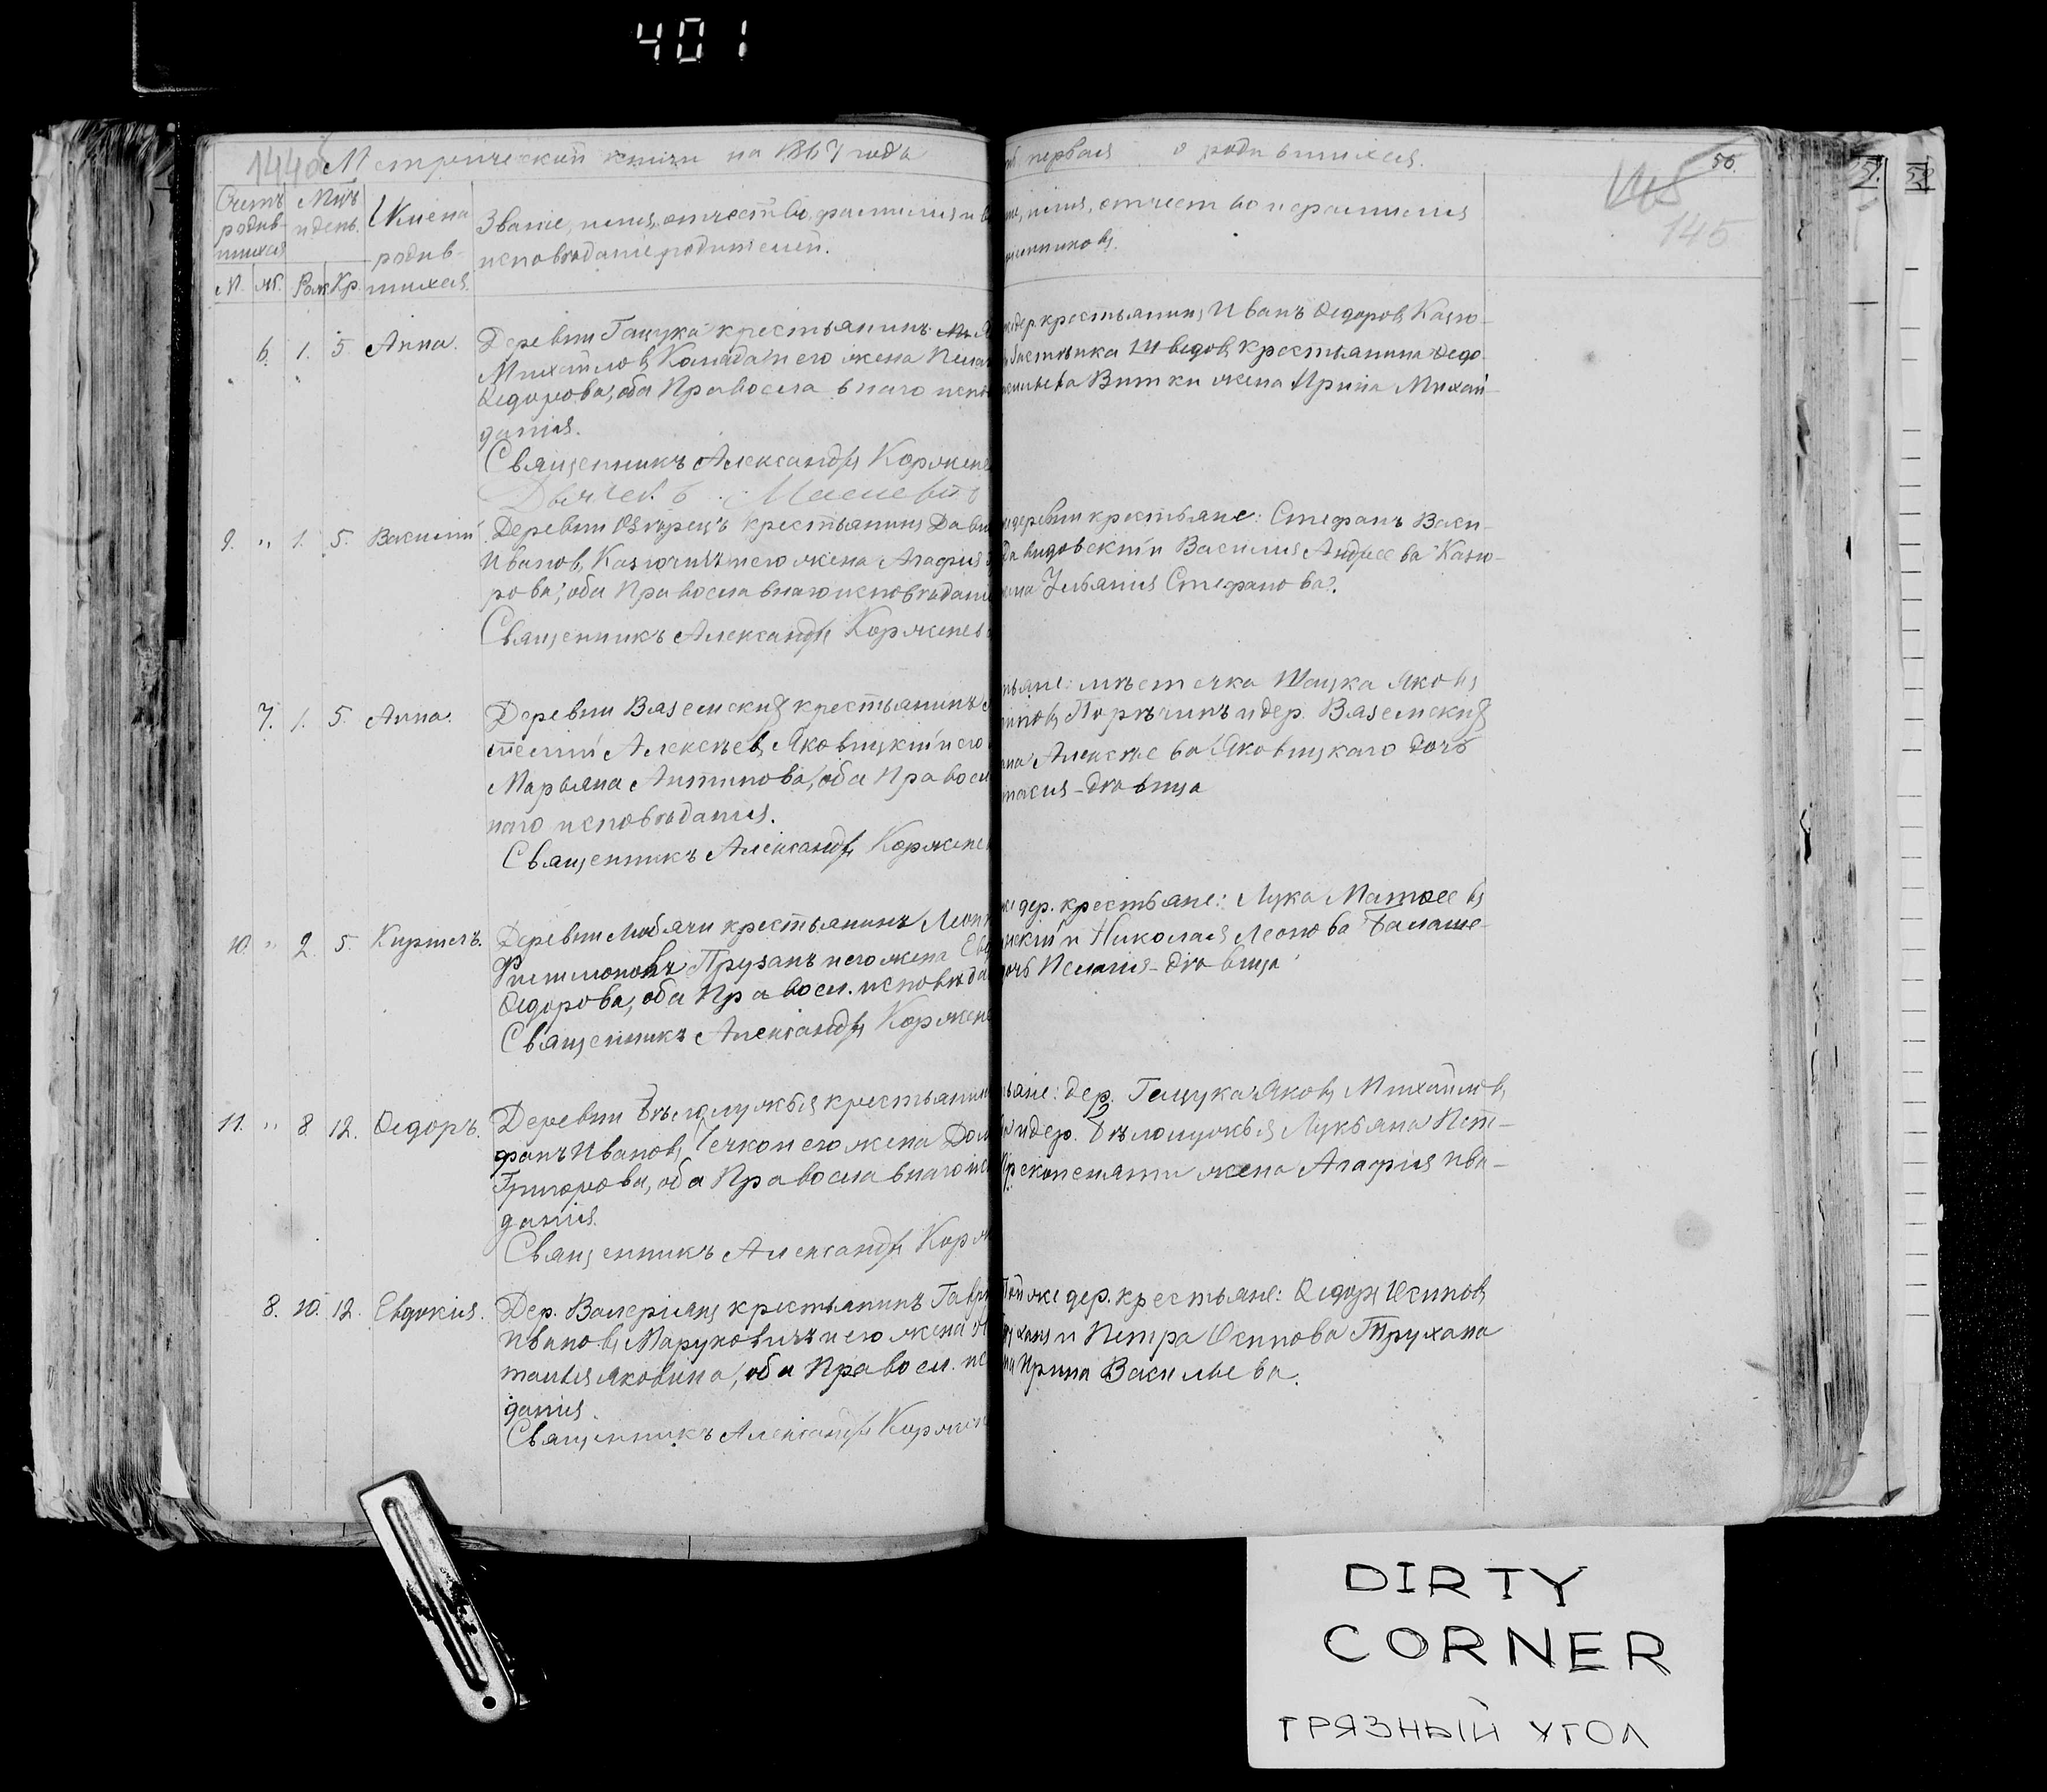 401
144об Метрической книги на 1867 годъ
Счетъ родив-шихся
М. Ж.
Мцъ и день.
Рож Кр.
Имена родив-шихся
Званіе, имя, отчество, фамилія и
исповѣданіе родителей.
6. 1. 5. Анна.
Деревни Гацука крестьянинъ
Михайловъ Калада и его жена
Ѳедорова, оба Православнаго
данія.
Священникъ Александръ Коржене
9. " 1. 5. Василій.
Деревни Язгорецъ крестьянинъ Дави
Ивановъ Казючицъ и его жена Агафія
рова, оба Православнаго исповѣдані
Священникъ Александръ Корженев
7. 1. 5. Анна.
Деревни Вяземскихъ крестьянинъ
Алексѣевъ Яковицкій и его
Марьяна Антипова, оба Правосл
наго исповѣданія.
Священникъ Александръ Коржене
10. " 2. 5. Кириллъ.
Деревни Любячи крестьянинъ Леон
Филимоновъ Прузанъ и его жена Ев
Ѳедорова, оба Правосл. исповѣда
Священникъ Александръ Коржене
11. " 8. 12. Ѳедоръ.
Деревни Бѣлолужья крестьянин
фанъ Ивановъ Чечко и его жена Дом
Григорова, оба Православнаго
данія.
Священникъ Александръ Корж
8. 10. 12. Евдокія.
Дер. Валеріянъ крестьянинъ Гаври
Ивановъ Маруковичъ и его жена
талья Яковина, оба Правосл. ис
данія.
Священникъ Александръ Коржен
первая о родившихся.
56.
145
имя, отчество и фамилія
дер. крестьянинъ Иванъ Ѳедоровъ Казю-
Шведовъ крестьянина Ѳедо
Витки жена Ирина Михай-
деревни крестьяне: Стефанъ Васи-
Давидовскій и Василія Андреева Казю-
Ульянія Стефанова.
мѣстечка Шацка Яковъ
Порѣчинъ и дер. Вяземскихъ
Алексѣева Яковицкаго дочь
тасія - дѣвица
дер. крестьяне: Лука Матѳеевъ
нскій и Николая Леонова Балаше-
дочь Пелагія - дѣвица
дер. Гацука Яковъ Михайловъ
и дер. Бѣлолужья Лукьяна Пет-
жена Агафія Ива-
Той же дер. крестьяне: Ѳедоръ Осиповъ
и Петра Осипова Трухана
Ирина Васильева.
DIRTY
CORNER
ГРЯЗНЫЙ УГОЛ